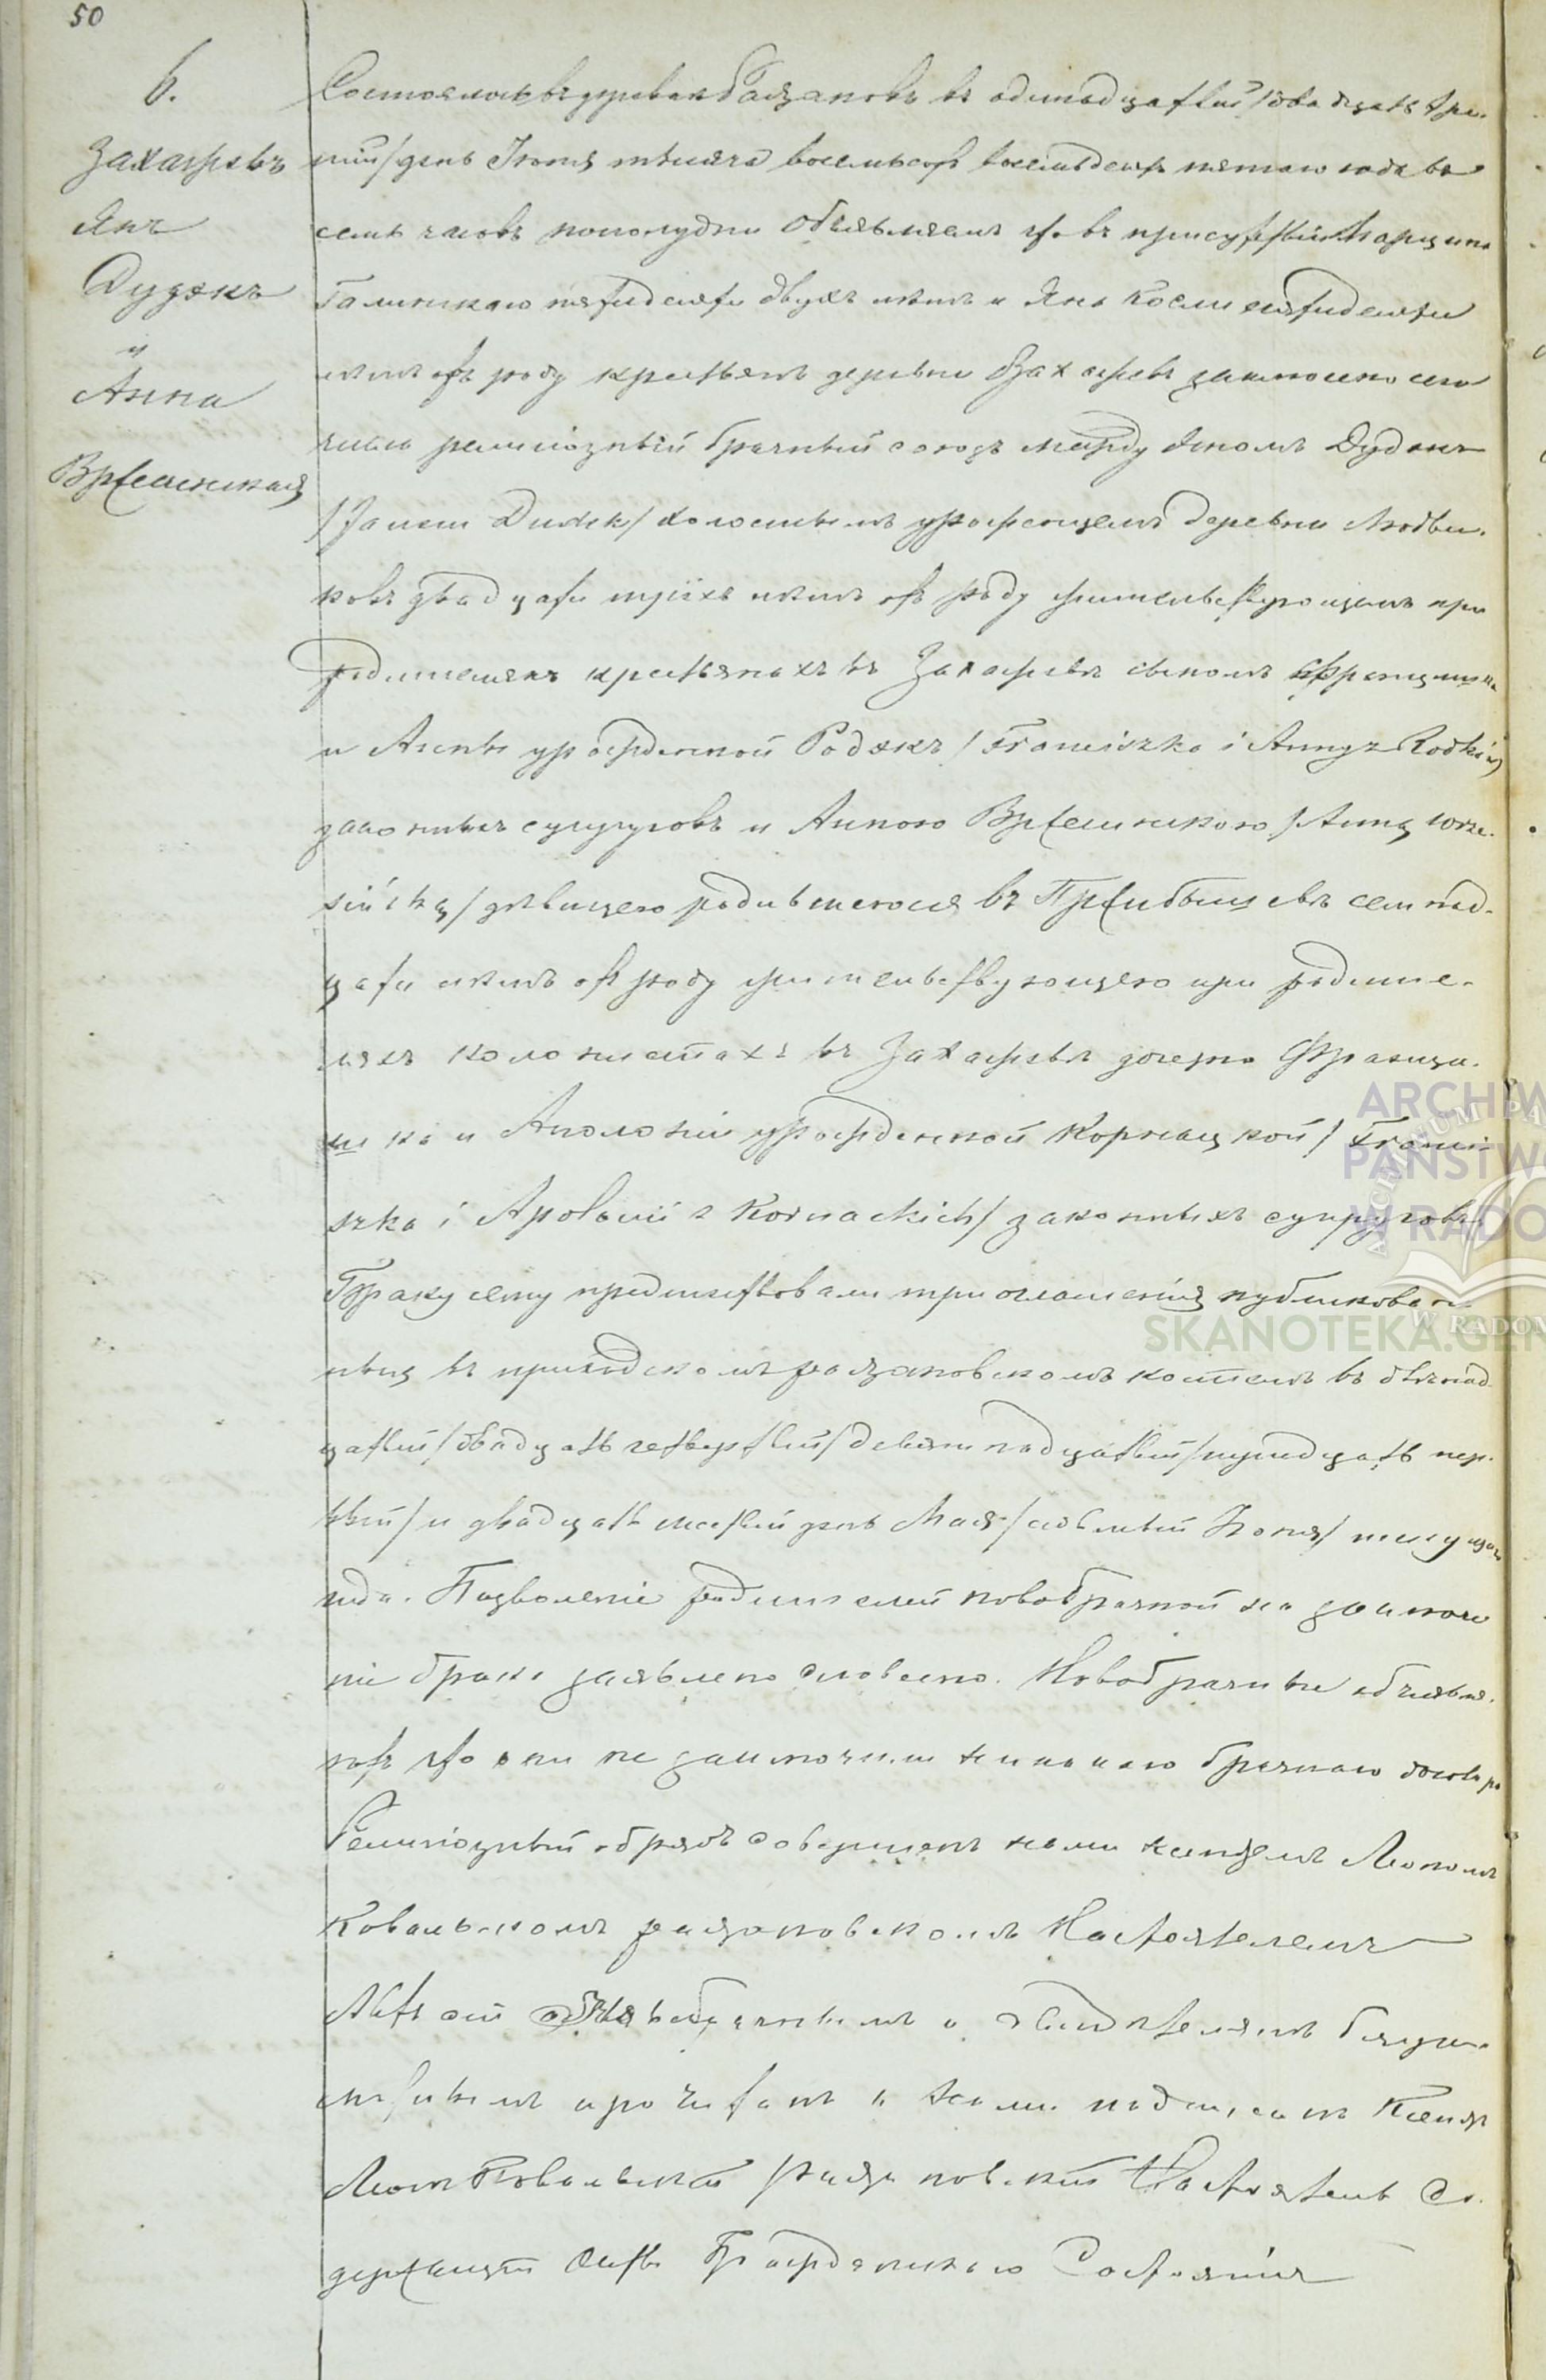 50
6.
Захаржевъ
Янъ
Дудэкъ
и
Анна
Вржешинская
Состоялось въ деревни Радзановъ въ одинадцатый /двадцать тре-
тій/ день Іюня тысяча восемьсотъ восемьдесятъ пятаго года въ
семь часовъ пополудни Объявляемъ что въ присутствіи Марцина
пятидесяти двухъ лѣтъ и Яна пятидесяти
лѣтъ отъ роду крестьянъ деревни Захаржевъ заключено сего
числа религіозный брачный союзъ между Яномъ Дудэкъ
/Janem Dudek/ холостымъ урожденцемъ деревни Людви-
ковъ двадцати трiхъ лѣтъ отъ роду жительствующимъ при
родителяхъ крестьянахъ въ Захаржевъ сыномъ Францишка
и Анны урожденной Родэкъ /Franciszka i Anny z Rodków/
законныхъ супруговъ и Анною Вржешинскою /Anną Wrze-
sińską/ дѣвицею родившеюся въ Пржибышевъ семнад-
цати лѣтъ отъ роду жительствующею при родите-
ляхъ колонистахъ въ Захаржевъ дочерью Францы-
шка и Аполоніи урожденной Корнацкой /Franci-
szka i Apolonii z Kornackich/ законныхъ супруговъ
Браку сему предшествовали три оглашенія публикован-
ныя въ приходскомъ радзановскомъ костелѣ въ двѣнад-
цатый /двадцать четвертый/ девятнадцатый /тридцать пер-
вый/ и двадцать шестый день Мая /седьмый Іюня/ текущаго
года. Позволеніе родителей новобрачной на заключе
ніе брака заявлено словесно. Новобрачные объявля-
ютъ что они не заключили никакого брачнаго договора
Религіозный обрядъ совершенъ нами ксендземъ Леономъ
Ковальскомъ радзановскомъ Настоятелемъ
Актъ сей Новобрачнымъ и Свидѣтелямъ безгра-
мотнымъ прочитанъ и нами подписанъ Ксендзъ
Леонъ Ковальскій радзановскій Настоятель Со-
держащій Акты Гражданскаго Состоянія
ARCHIWUM PA
ARCHIW
PAŃSTWO
W RADO
W RADOM
SKANOTEKA.GEN